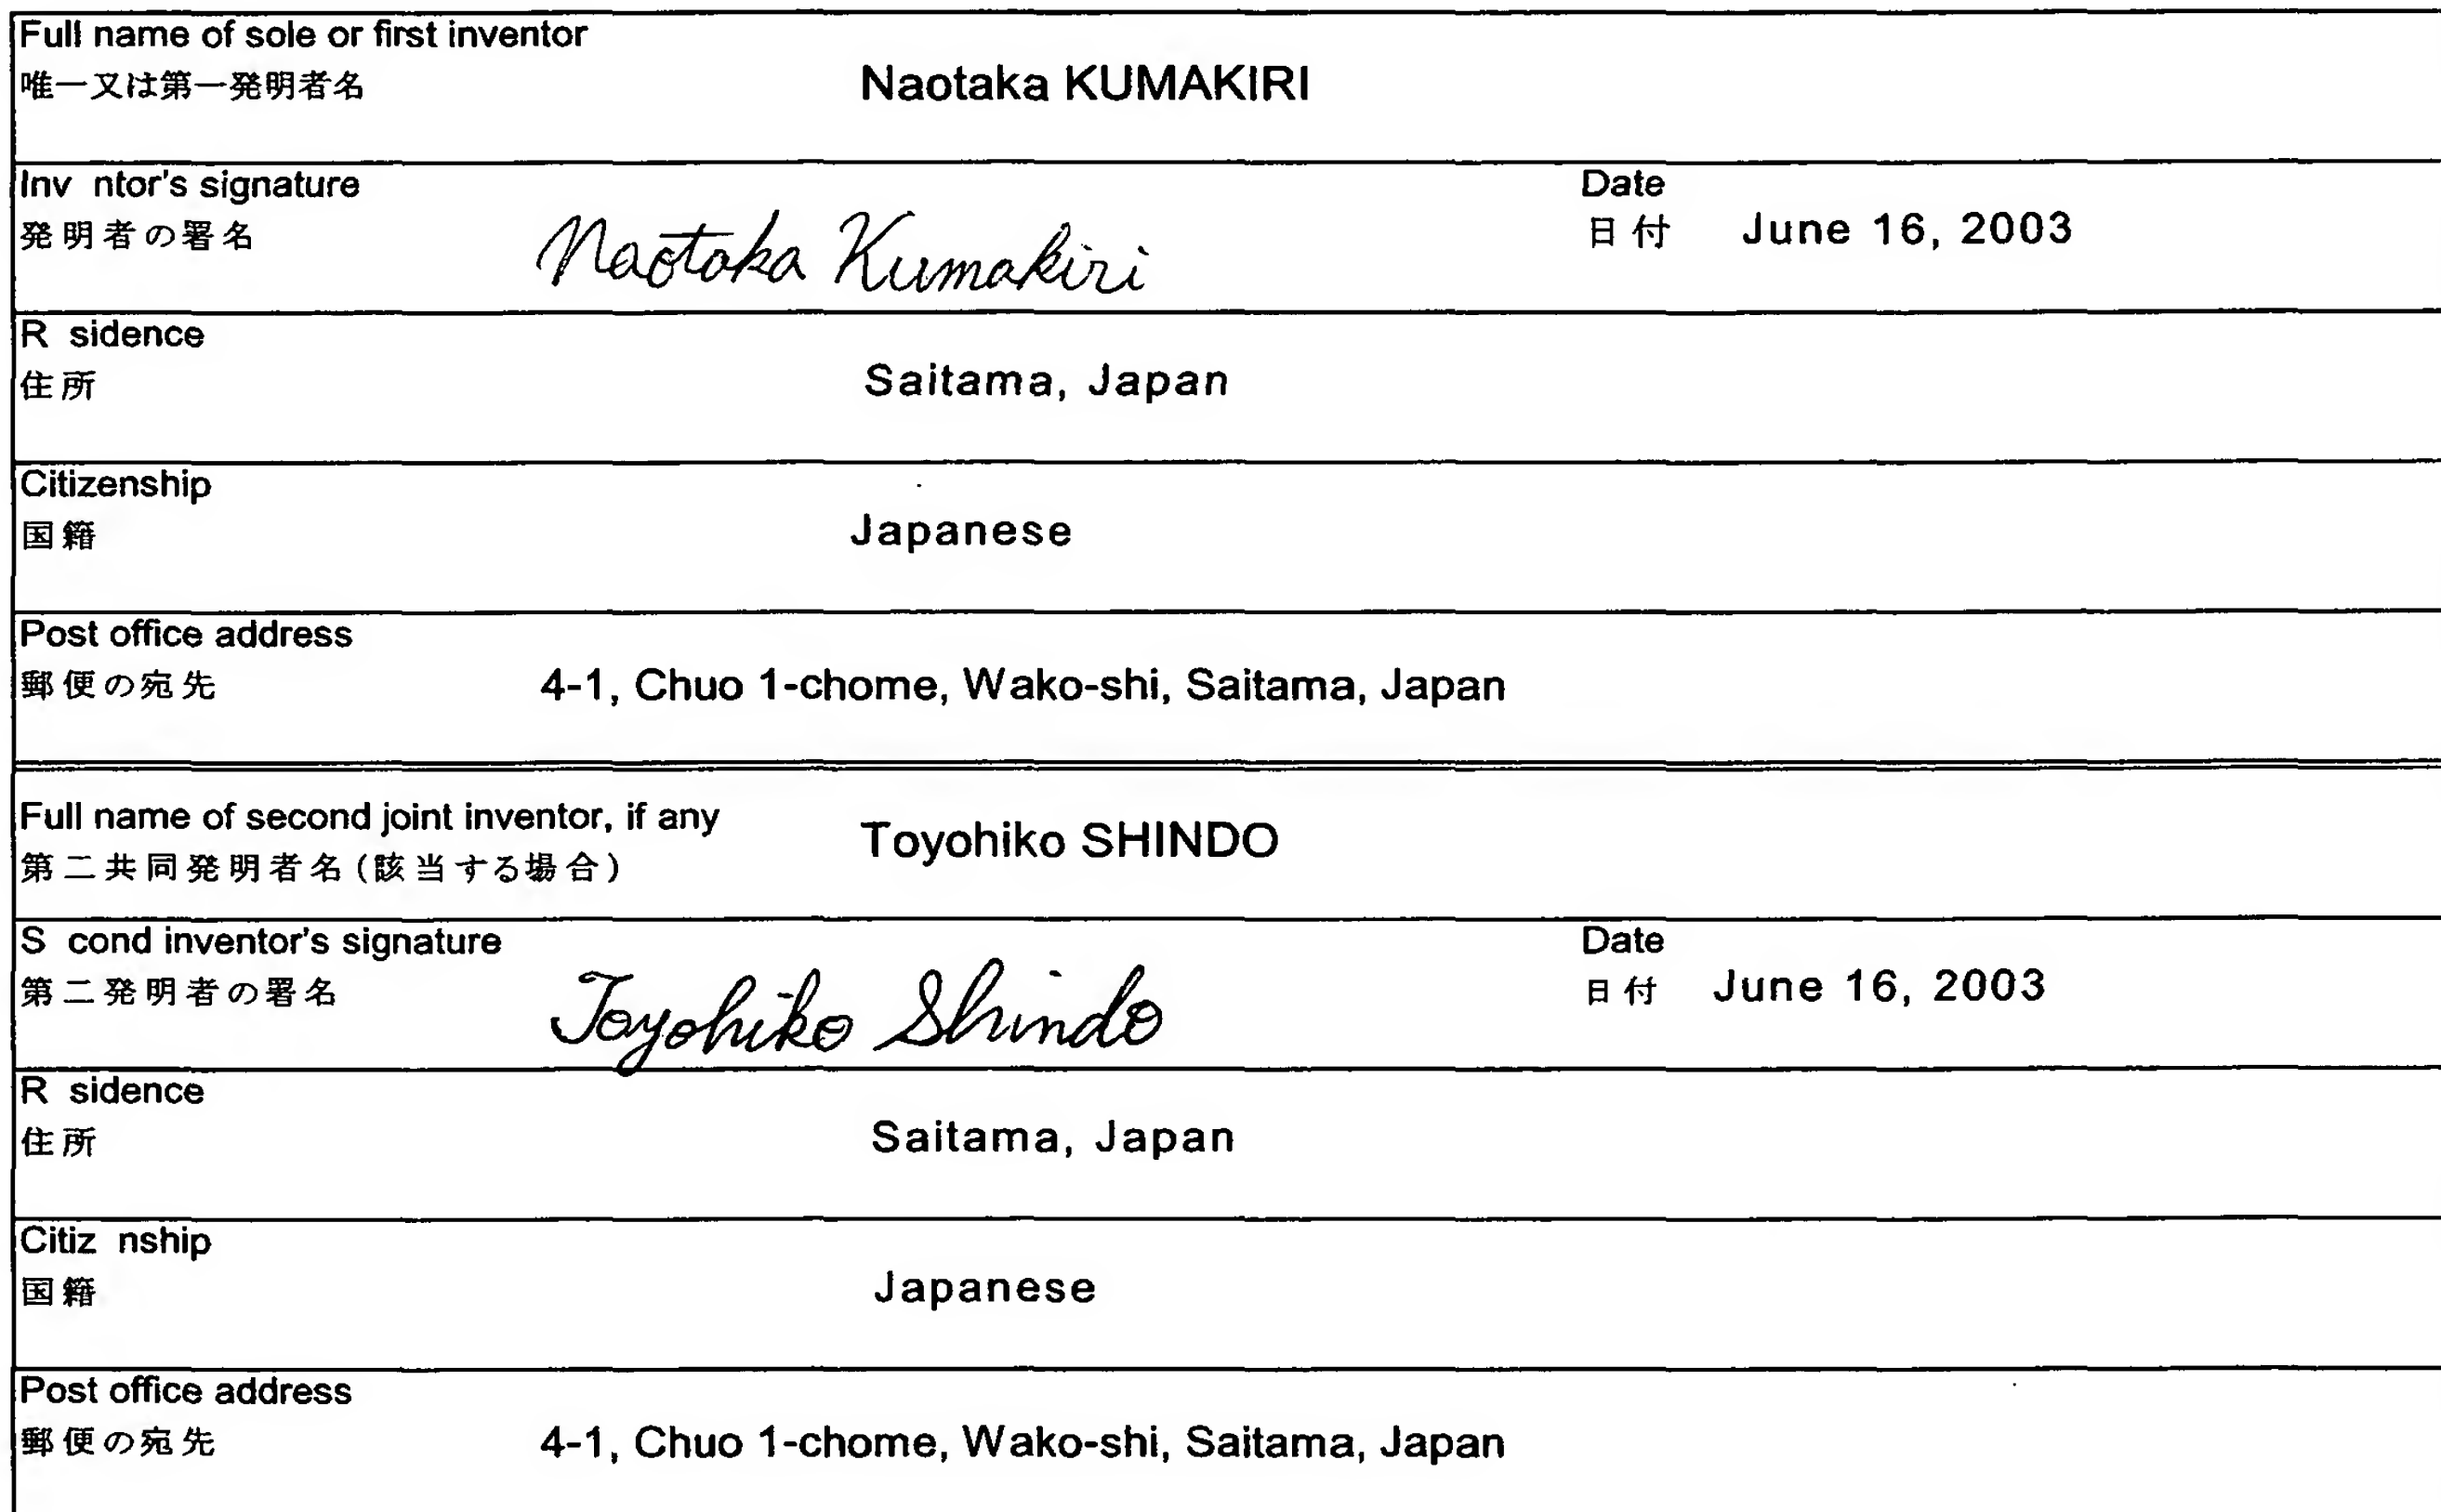 Full name of sole or first inventor
唯一又は第一発明者名 Naotaka KUMAKIRI
Inv ntor's signature Date
発明者の署名 Naotaka Kumakiri 日付 June 16, 2003
R sidence
住所 Saitama, Japan
Citizenship
国籍 Japanese
Post office address
郵便の宛先 4-1, Chuo 1-chome, Wako-shi, Saitama, Japan
Full name of second joint inventor, if any Toyohiko SHINDO
第二共同発明者名(該当する場合)
S cond inventor's signature Date
第二発明者の署名 Toyohiko Shindo 日付 June 16, 2003
R sidence
住所 Saitama, Japan
Citiz nship
国籍 Japanese
Post office address
郵便の宛先 4-1, Chuo 1-chome, Wako-shi, Saitama, Japan